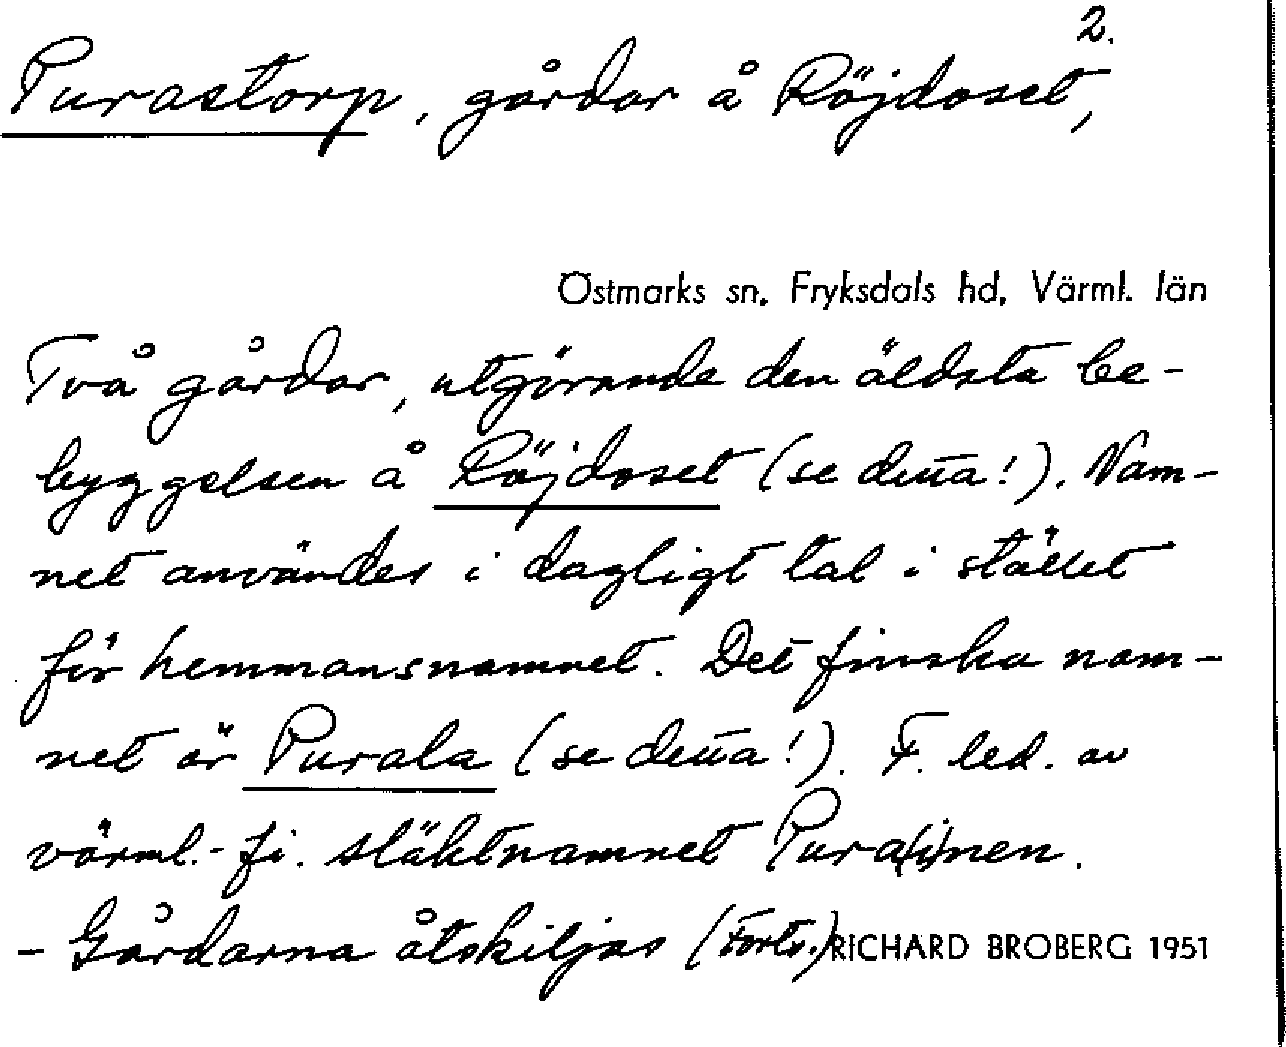 2.
Purastorp, gårdar å Röjdoset,
Östmarks sn, Fryksdals hd, Värml. län
Två gårdar, utgörande den äldsta be-
byggelsen å Röjdoset (se detta!). Nam-
net användes i dagligt tal i stället
för hemmansnamnet. Det finska nam-
net är Purala (se detta!). F. led. av
värml.-fi. släktnamnet Pura(i)nen.
- Gårdarna åtskiljas (Forts.) RICHARD BROBERG 1951